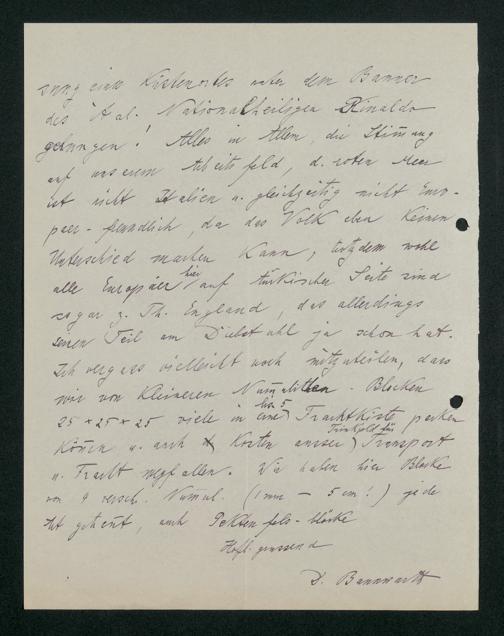 zung eines Küstenortes unter dem Banner
des Ital. Nationalheiligen Rinaldo
gelungen! Alles in Allem, die Stimmung
auf unserem Arbeitsfeld, d. roten Meer
ist nicht Italien u. gleichzeitig nicht Euro-
paer-freundlich, da das Volk eben keinen
Unterschied machen kann, trotzdem wohl
alle Europäer hier auf türkischer Seite sind
sogar z. Th. England, das allerdings
seinen Teil am Diebstahl ja schon hat.
Ich vergass vielleicht noch mitzuteilen, dass
wir von kleineren Numuliten-Blöcken
25 × 25 × 25 viele in eine Frachtkiste packen
können u. auch Kosten ausser Transport
u. Fracht wegfallen. Wir haben hier Blöcke
von 4 versch. Numul. (1 mm – 5 cm!) jede
Art getrennt, auch Pektenfels-blöcke
Hofl. grüssend
D. Bannwarth